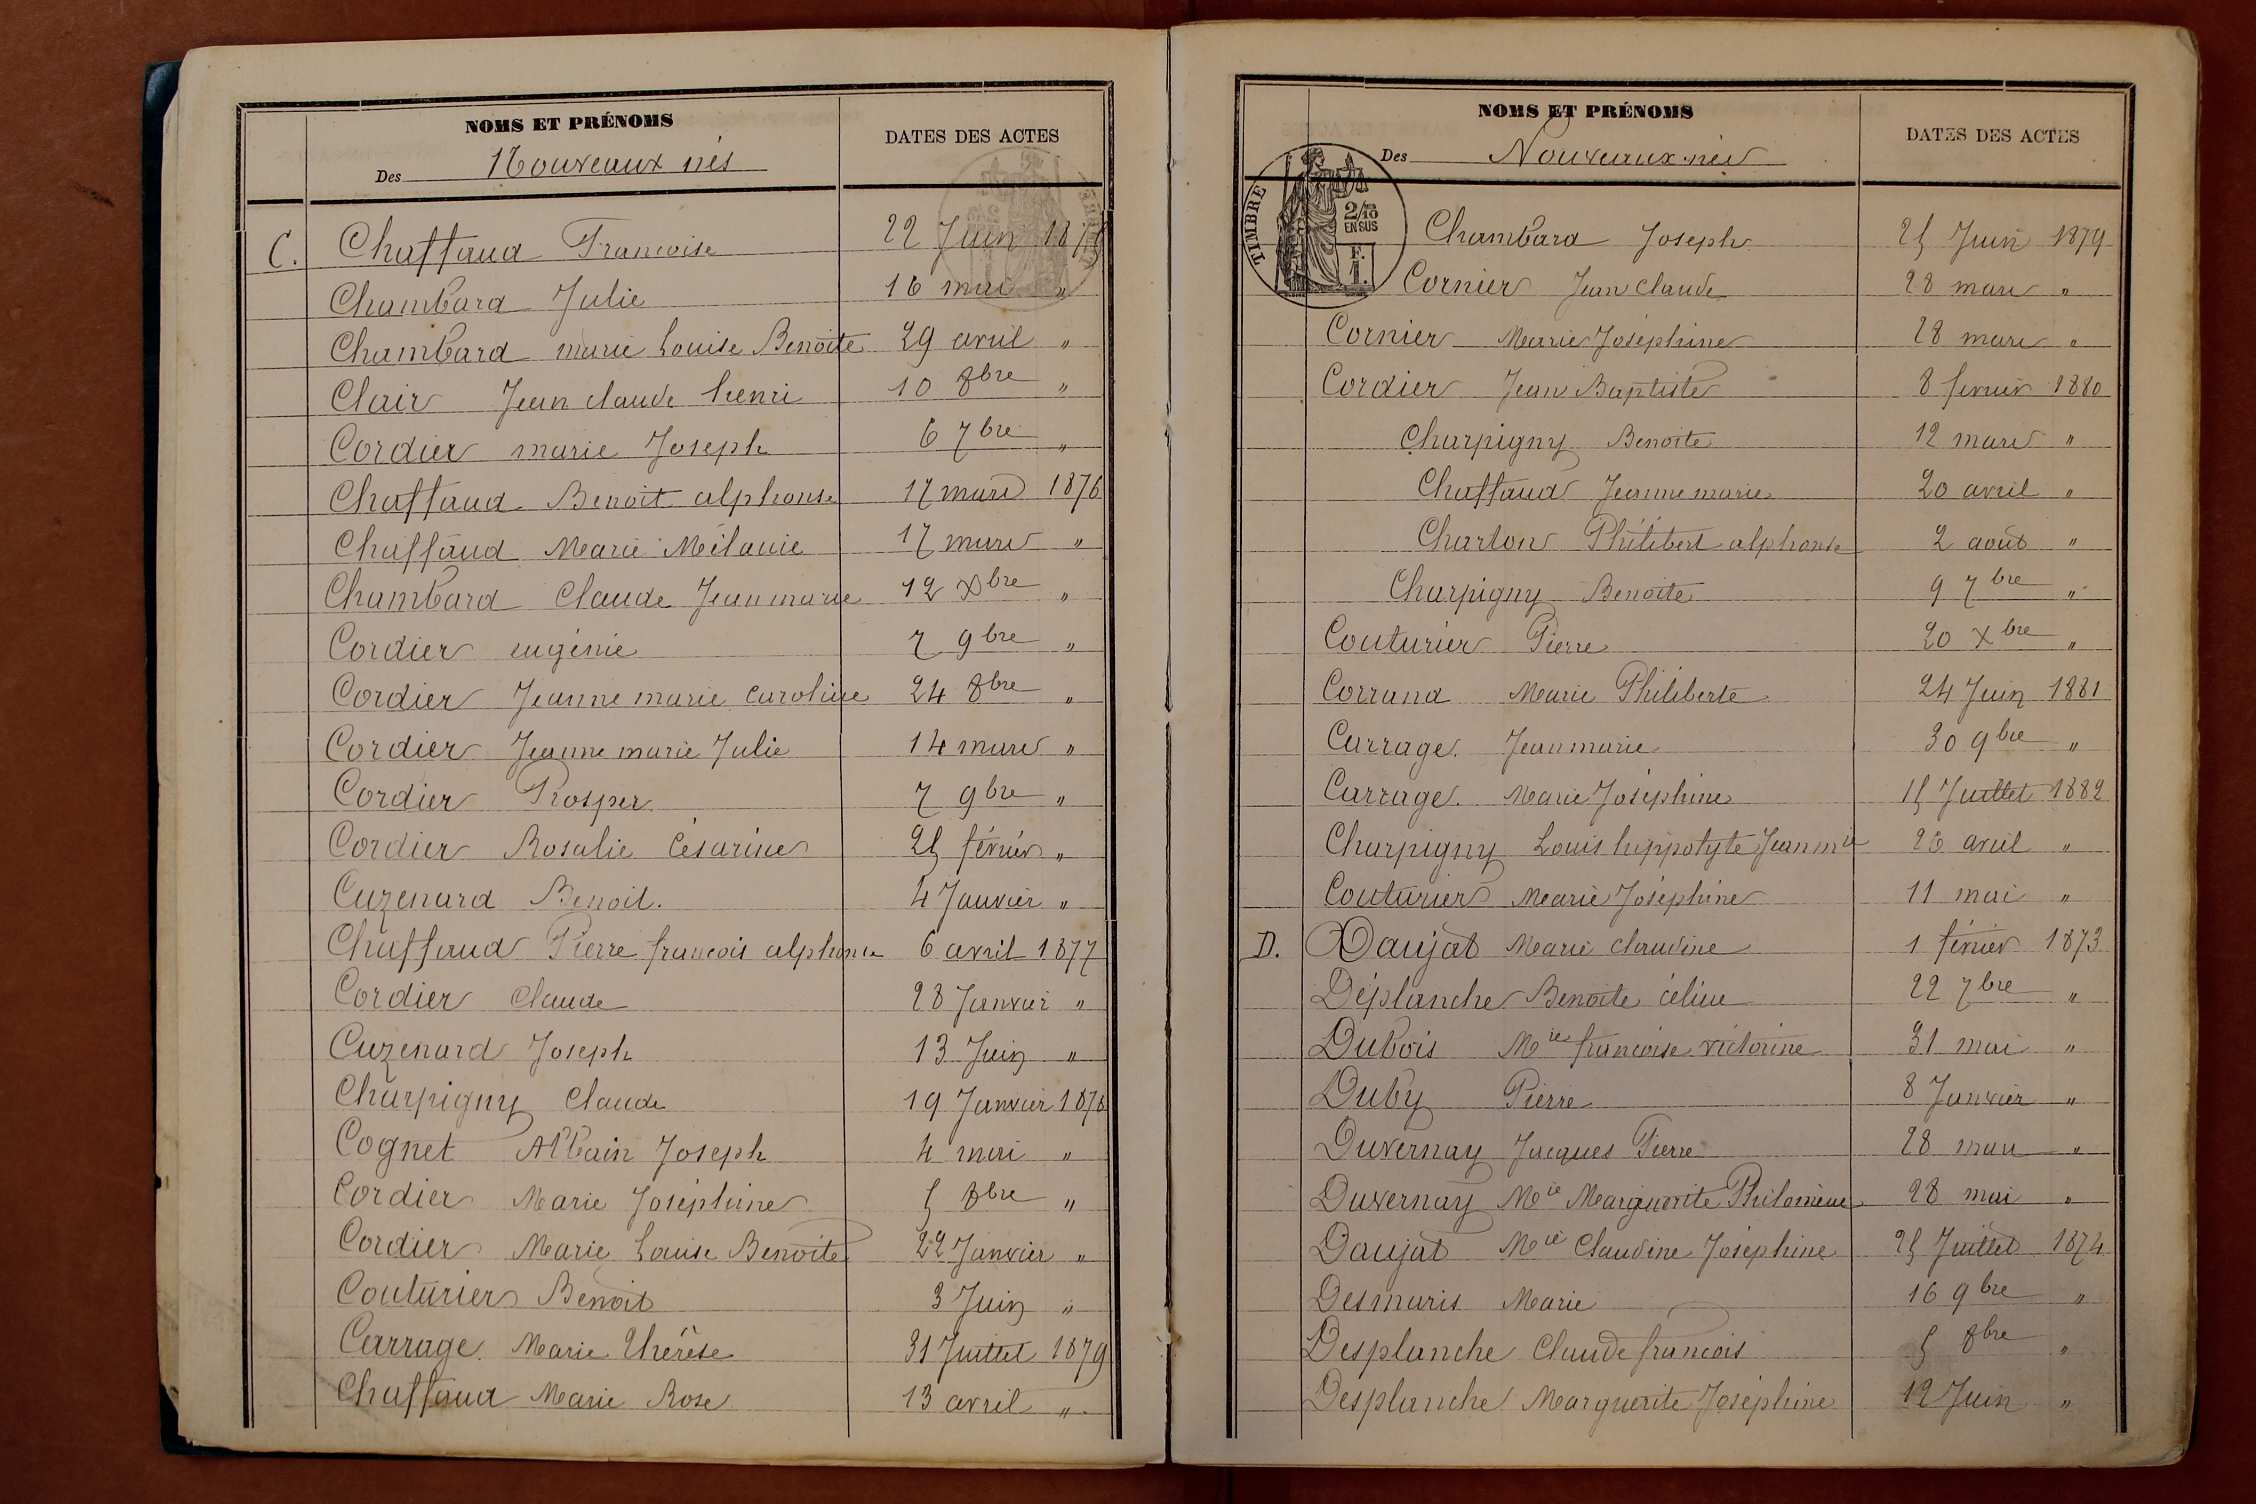 NOMS ET PRÉNOMS
DATES DES ACTES
Des Nouveaux nés
C. Chaffaud Francoise 22 Juin
Chambard Julie 16 mai "
Chambard marie Louise Benoite 29 avril "
Clair Jean claude henri 10 8bre "
Cordier marie Joseph 6 7bre "
Chaffaud Benoit alphonse 17 mars 1876
Chaffaud Marie Mélanie 17 mars "
Chambard Claude Jean marie 12 Xbre "
Cordier eugénie 7 9bre "
Cordier Jeanne marie caroline 24 8bre "
Cordier Jeanne marie Julie 14 mars "
Cordier Prosper 7 9bre "
Cordier Rosalie Césarine 25 février "
Cuzenard Benoit. 4 Janvier "
Chaffaud Pierre francois alphonse 6 avril 1877
Cordier Claude 28 Janvier "
Cuzenard Joseph 13 Juin "
Charpigny Claude 19 Janvier 1878
Cognet Albain Joseph 4 mai "
Cordier Marie Joséphine 5 8bre "
Cordier Marie Louise Benoite 22 Janvier "
Couturier Benoit 3 Juin "
Carrage. Marie Thérèse 31 Juillet 1879
Chaffaud Marie Rose 13 avril "
NOMS ET PRÉNOMS
DATES DES ACTES
Des Nouveaux-nés
TIMBRE
2/10
EN SUS
F.
1.
Chambard Joseph 25 Juin 1879
Cornier Jean Claude 28 mars "
Cornier Marie Joséphine 28 mars "
Cordier Jean Baptiste 8 fevrier 1880
Charpigny Benoite 12 mars "
Chaffaud Jeanne marie 20 avril "
Charton Philibert alphonse 2 août "
Charpigny Benoite 9 7bre "
Couturier Pierre 20 Xbre "
Corrand Marie Philiberte 24 Juin 1881
Carrage. Jean marie 30 9bre "
Carrage. Marie Joséphine 15 Juillet 1882
Charpigny Louis hippolyte Jean mie 26 avril "
Couturier Marie Joséphine 11 mai "
D. Daujat Marie claudine 1 février 1873
Déplanche Benoite céline 22 7bre "
Dubois Mie francoise victorine 31 mai "
Duby Pierre 8 Janvier "
Duvernay Jacques Pierre 28 mars "
Duvernay Mie Marguerite Philomène 28 mai "
Daujat Mie Claudine Joséphine 25 Juillet 1874
Desmaris Marie 16 9bre "
Desplanche Claude francois 5 8bre "
Desplanche Marguerite Joséphine 12 Juin "